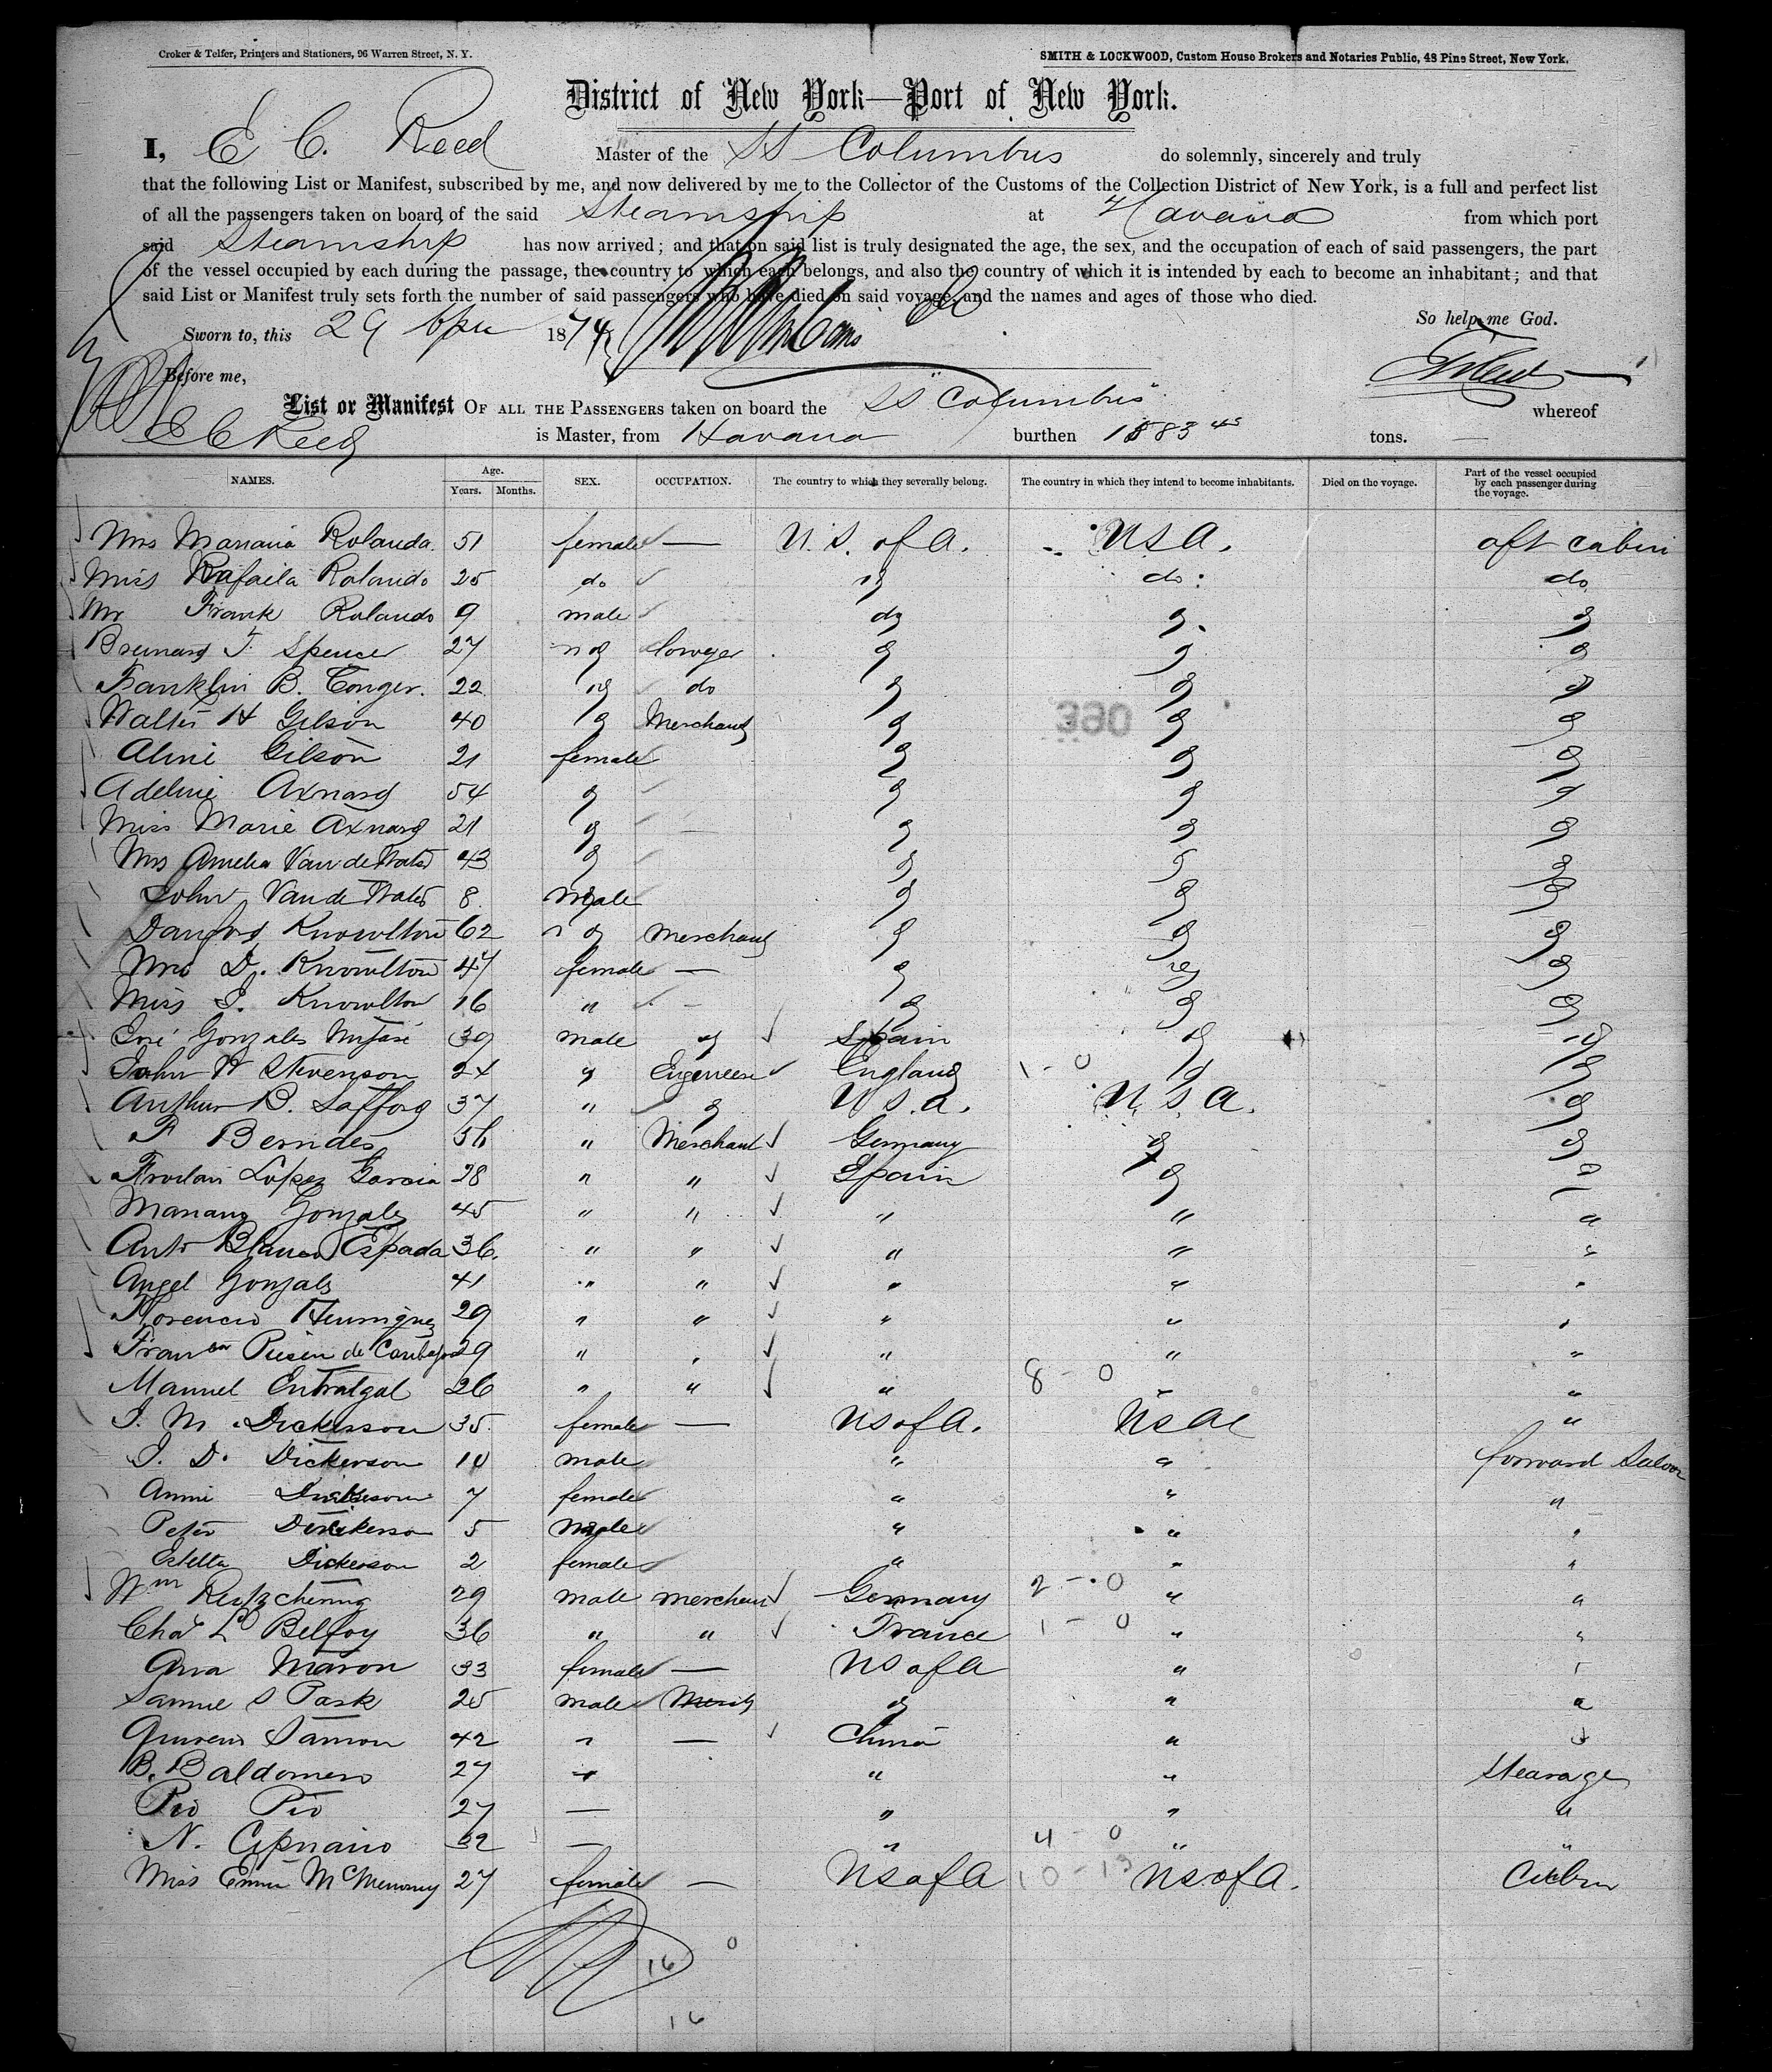 Croker & Telfer, Printers and Stationers, 96 Warren Street, N. Y.
SMITH & LOCKWOOD, Custom House Brokers and Notaries Public, 48 Pine Street, New York.
District of New York—Port of New York.
I, E C. Reed Master of the SS Columbus do solemnly, sincerely and truly
that the following List or Manifest, subscribed by me, and now delivered by me to the Collector of the Customs of the Collection District of New York, is a full and perfect list
of all the passengers taken on board of the said Steamship at Havana from which port
said Steamship has now arrived; and that on said list is truly designated the age, the sex, and the occupation of each of said passengers, the part
of the vessel occupied by each during the passage, the country to which each belongs, and also the country of which it is intended by each to become an inhabitant; and that
said List or Manifest truly sets forth the number of said passengers who have died on said voyage, and the names and ages of those who died.
So help me God.
Sworn to, this 29 1874
Before me,
List or Manifest OF ALL THE PASSENGERS taken on board the SS "Columbus" whereof
E C Reed is Master, from Havana burthen 1883 45 tons.
NAMES. Age. Years. Months. SEX. OCCUPATION. The country to which they severally belong. The country in which they intend to become inhabitants. Died on the voyage. Part of the vessel occupied by each passenger during the voyage.
Mrs Rolanda 51 female — U. S. of A. USA. aft cabin
Miss Rafaila Rolando 25 do do do
Mr Frank Rolando 9 male do
T. Spence 27 do lawyer
Franklin B. Conger. 22 do do
Walter H Gilson 40 Merchant
Gilson 21 female
Axnard 54
Miss Marie Axnard 21
Mrs Amelia Van de Water 43
John Van de Water 8. Male
Knowlton 62 do Merchant
Mrs D. Knowlton 47 female —
Miss Knowlton 16 " -
José Gonzales 39 male do Spain do
John W Stevenson 24 Engineer England 1 - 0
Arthur B. Safford 37 " U S. a. U. S. A.
F Berndes 56 " Merchant Germany
Lopez Garcia 28 " " Spain
Gonzales 45 " " " " "
Blanco Espada 36. " " " " "
Angel Gonzals 41 " " " " "
Florencio 29 " " " " "
29 " " " " "
Manuel Entralgal 26 " " " 8 - 0 " "
M. Dickerson 35. female — US of A. "
D. Dickerson 10 male " " forward Saloon
Annie Dickerson 7 female " " "
Peter Dickerson 5 Male " " "
Estella Dickerson 2 female " " "
Wm 29 male merchant Germany 2 - 0 " "
Chas Belfoy 36 " " France 1 - 0 " "
33 female — US of A " "
Samuel S Park 25 male " "
42 " — China "
B. Baldomero 27 " " " Stearage
Pio Pio 27 — " " "
N. Cipriano 32 — " 4 - 0 " "
Miss 27 female — US of A 10 - 13 US of A. Cabin
390
16 0
16